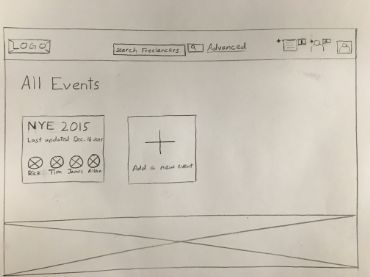 LOGO
Search Freelancers
Advanced
All Events
NYE 2015
Last updated Dec.
Rick Tim James
Add a new event